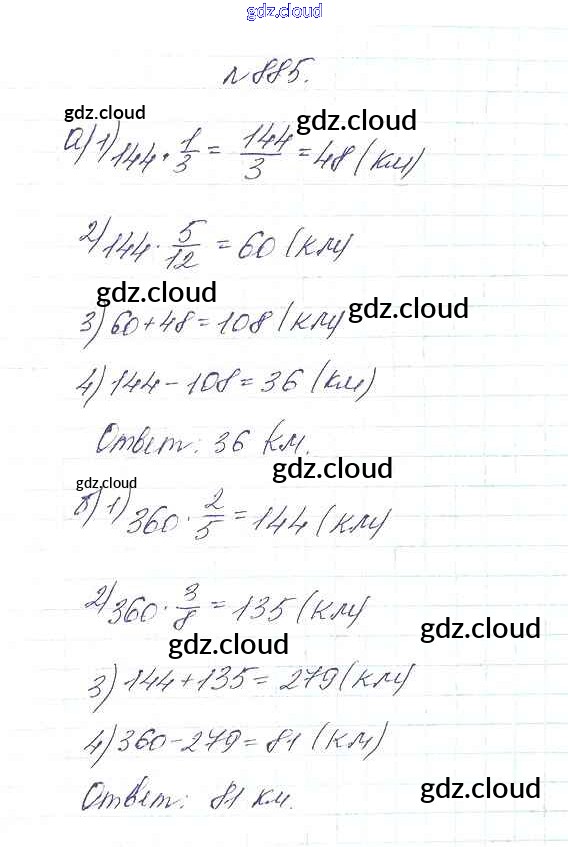 gdz.cloud
№885.
gdz.cloud
gdz.cloud
а) 1) 144 · 1/3 = 144/3 = 48 (км)
2) 144 · 5/12 = 60 (км)
gdz.cloud
gdz.cloud
3) 60 + 48 = 108 (км)
4) 144 - 108 = 36 (км)
Ответ: 36 км.
gdz.cloud
gdz.cloud
б) 1) 360 · 2/5 = 144 (км)
2) 360 · 3/8 = 135 (км)
gdz.cloud
gdz.cloud
3) 144 + 135 = 279 (км)
4) 360 - 279 = 81 (км)
Ответ: 81 км.
gdz.cloud